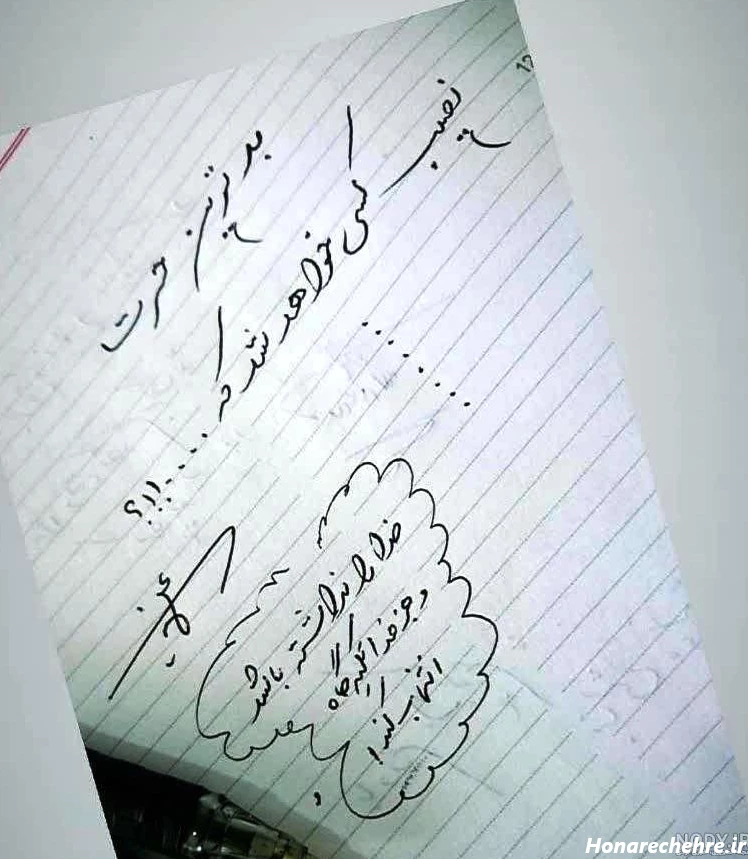 ۱۲
بدترین حسرت
نصیب کسی خواهد شد که .....!!!؟
........
خدا را نداشته باشد
و جز خدا تکیه گاه
انتخاب کند!
Honarechehre.ir